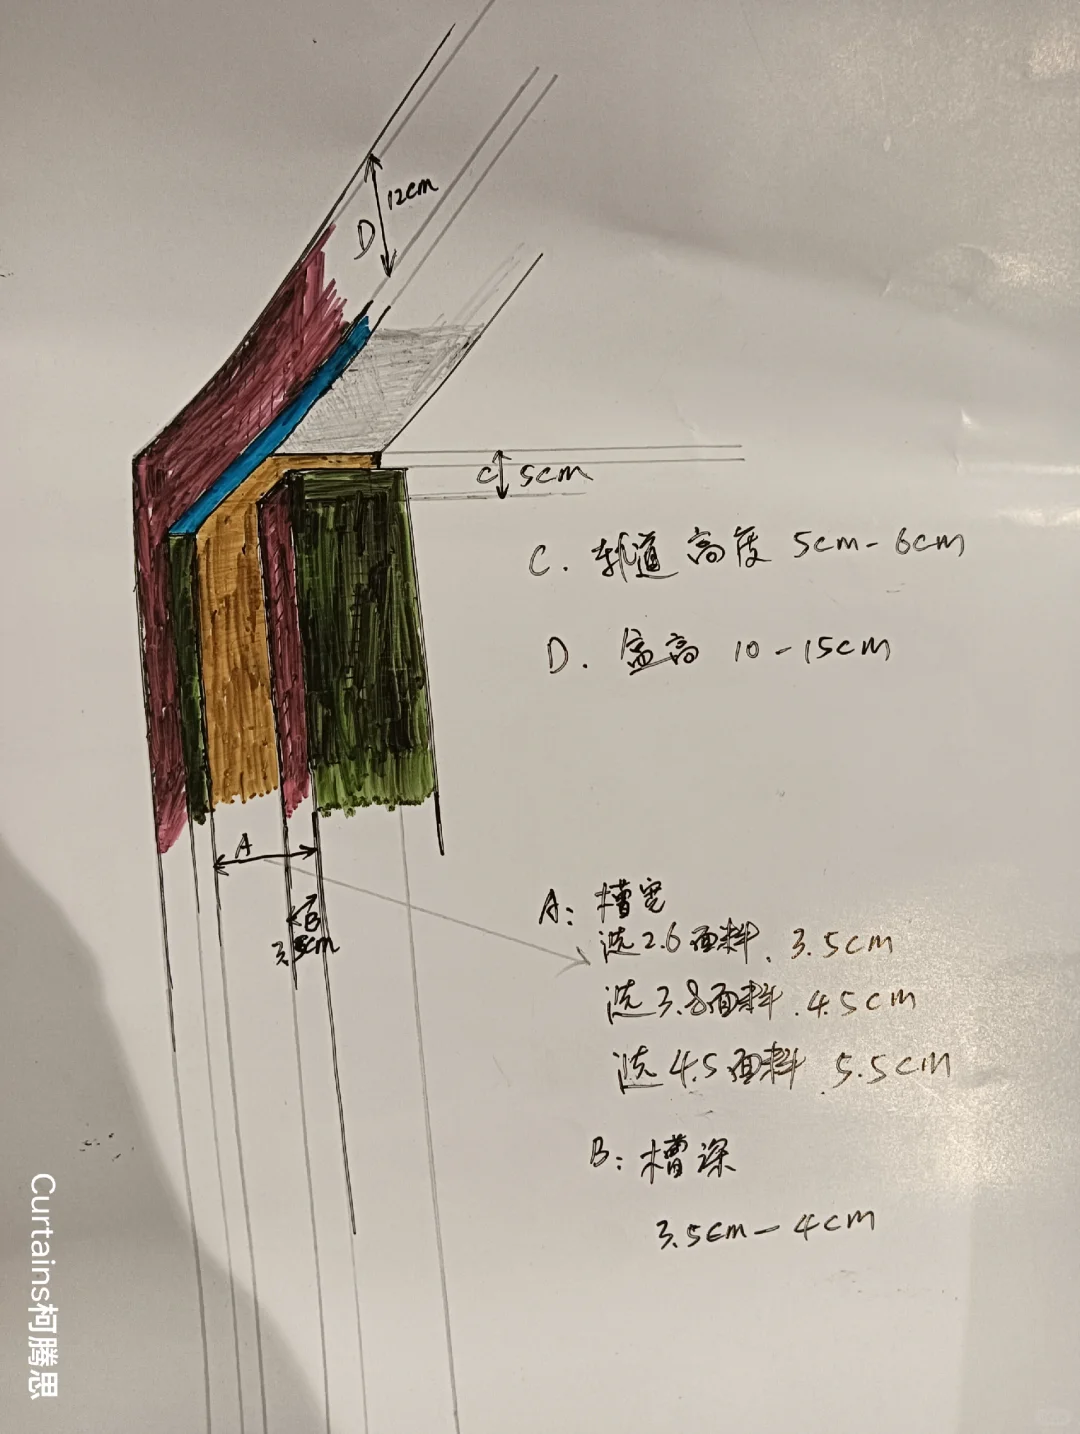 12cm
D
C 5cm
C. 轨道高度 5cm-6cm
D. 盒高 10-15cm
A
B
3.5cm
A: 槽宽
选2.6面料. 3.5cm
选3.8面料. 4.5cm
选4.5面料 5.5cm
B: 槽深
3.5cm-4cm
Curtains柯腾思